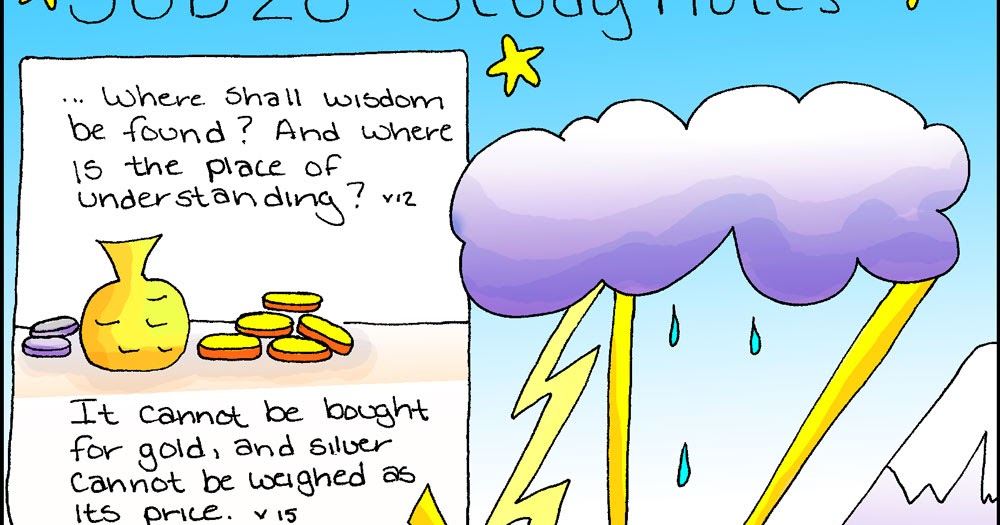 Job 28 Study Notes
... Where shall wisdom
be found? And where
is the place of
understanding? v12
It cannot be bought
for gold, and silver
cannot be weighed as
its price. v 15